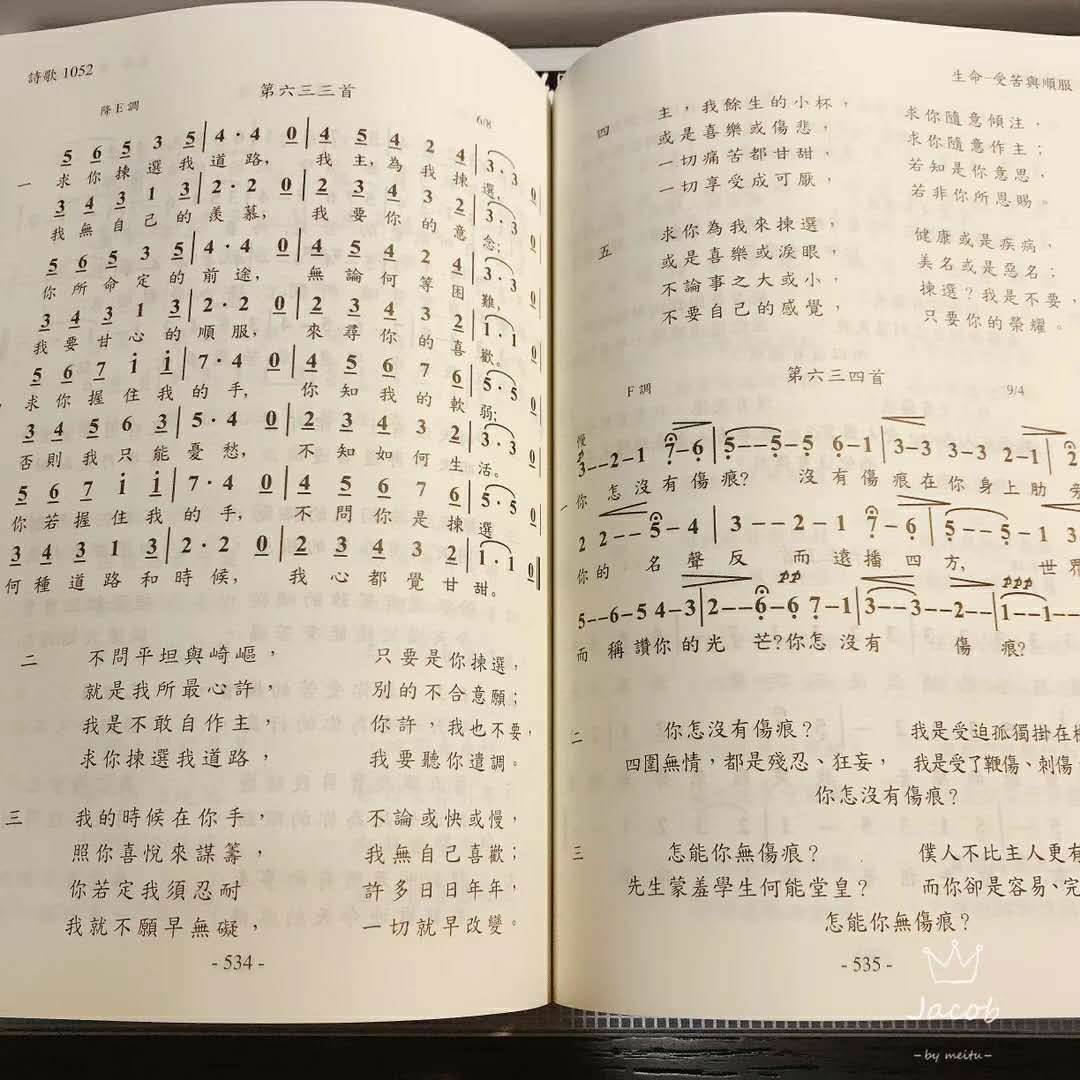 詩歌 1052
第六三三首
降E調 6/8
5 6 5 3 5 | 4 · 4 0 | 4 5 4 2 4 | 3 · 3 0
一 求你揀選我道路, 我主,為我揀選,
3 4 3 1 3 | 2 · 2 0 | 2 3 4 3 2 | 3 · 3 0
我無自己的羨慕, 我要你的意念;
5 6 5 3 5 | 4 · 4 0 | 4 5 4 2 4 | 3 · 3 0
你所命定的前途, 無論何等困難,
3 4 3 1 3 | 2 · 2 0 | 2 3 4 3 2 | 1 · 1 0
我要甘心的順服, 來尋你的喜歡。
5 6 7 i i | 7 · 4 0 | 4 5 6 7 6 | 5 · 5 0
求你握住我的手, 你知我的軟弱;
3 4 5 6 3 | 5 · 4 0 | 2 3 4 3 2 | 3 · 3 0
否則我只能憂愁, 不知如何生活。
5 6 7 i i | 7 · 4 0 | 4 5 6 7 6 | 5 · 5 0
你若握住我的手, 不問你是揀選
3 4 3 1 3 | 2 · 2 0 | 2 3 4 3 2 | 1 · 1 0
何種道路和時候, 我心都覺甘甜。
二 不問平坦與崎嶇, 只要是你揀選,
就是我所最心許, 別的不合意願;
我是不敢自作主, 你許,我也不要,
求你揀選我道路, 我要聽你遣調。
三 我的時候在你手, 不論或快或慢,
照你喜悅來謀籌, 我無自己喜歡;
你若定我須忍耐 許多日日年年,
我就不願早無礙, 一切就早改變。
- 534 -
生命–受苦與順服
四 主,我餘生的小杯, 求你隨意傾注,
或是喜樂或傷悲, 求你隨意作主;
一切痛苦都甘甜, 若知是你意思,
一切享受成可厭, 若非你所恩賜。
五 求你為我來揀選, 健康或是疾病,
或是喜樂或淚眼, 美名或是惡名;
不論事之大或小, 揀選?我是不要,
不要自己的感覺, 只要你的榮耀。
第六三四首
F調 9/4
慢
p
3--2-1 7-6 | 5--5-5 6-1 | 3-3 3-3 2-1 | 2
一 你 怎沒有傷痕? 沒有傷痕在你身上肋旁
2 2--5-4 | 3--2-1 7-6 | 5--5-1 3
你的 名聲反 而遠播四方, 世界
pp ppp
5--6-5 4-3 | 2--6-6 7-1 | 3--3--2-- | 1--1--
而 稱讚你的光 芒?你怎沒有 傷 痕?
二 你怎沒有傷痕? 我是受迫孤獨掛在
四圍無情,都是殘忍、狂妄, 我是受了鞭傷、刺傷、
你怎沒有傷痕?
三 怎能你無傷痕? 僕人不比主人更有
先生蒙羞學生何能堂皇? 而你卻是容易、完
怎能你無傷痕?
- 535 -
Jacob
- by meitu -